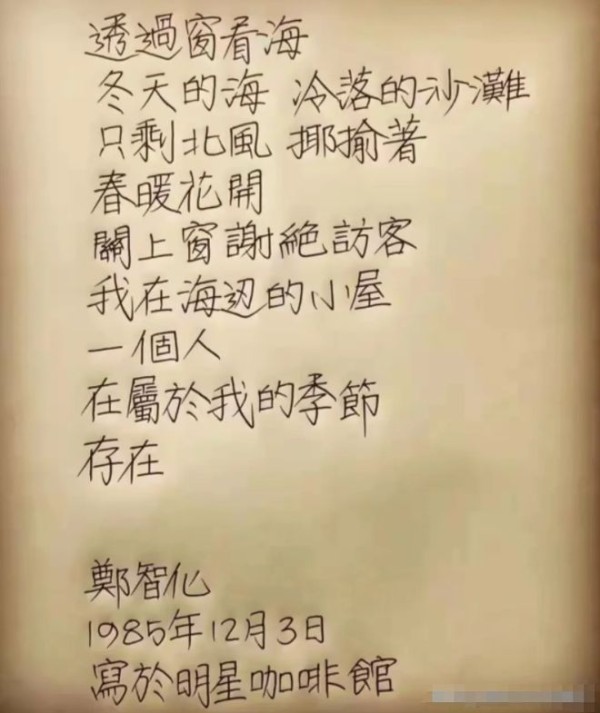 透過窗看海
冬天的海 冷落的沙灘
只剩北風 揶揄著
春暖花開
關上窗謝絕訪客
我在海边的小屋
一個人
在屬於我的季節
存在
鄭智化
1985年12月3日
寫於明星咖啡館